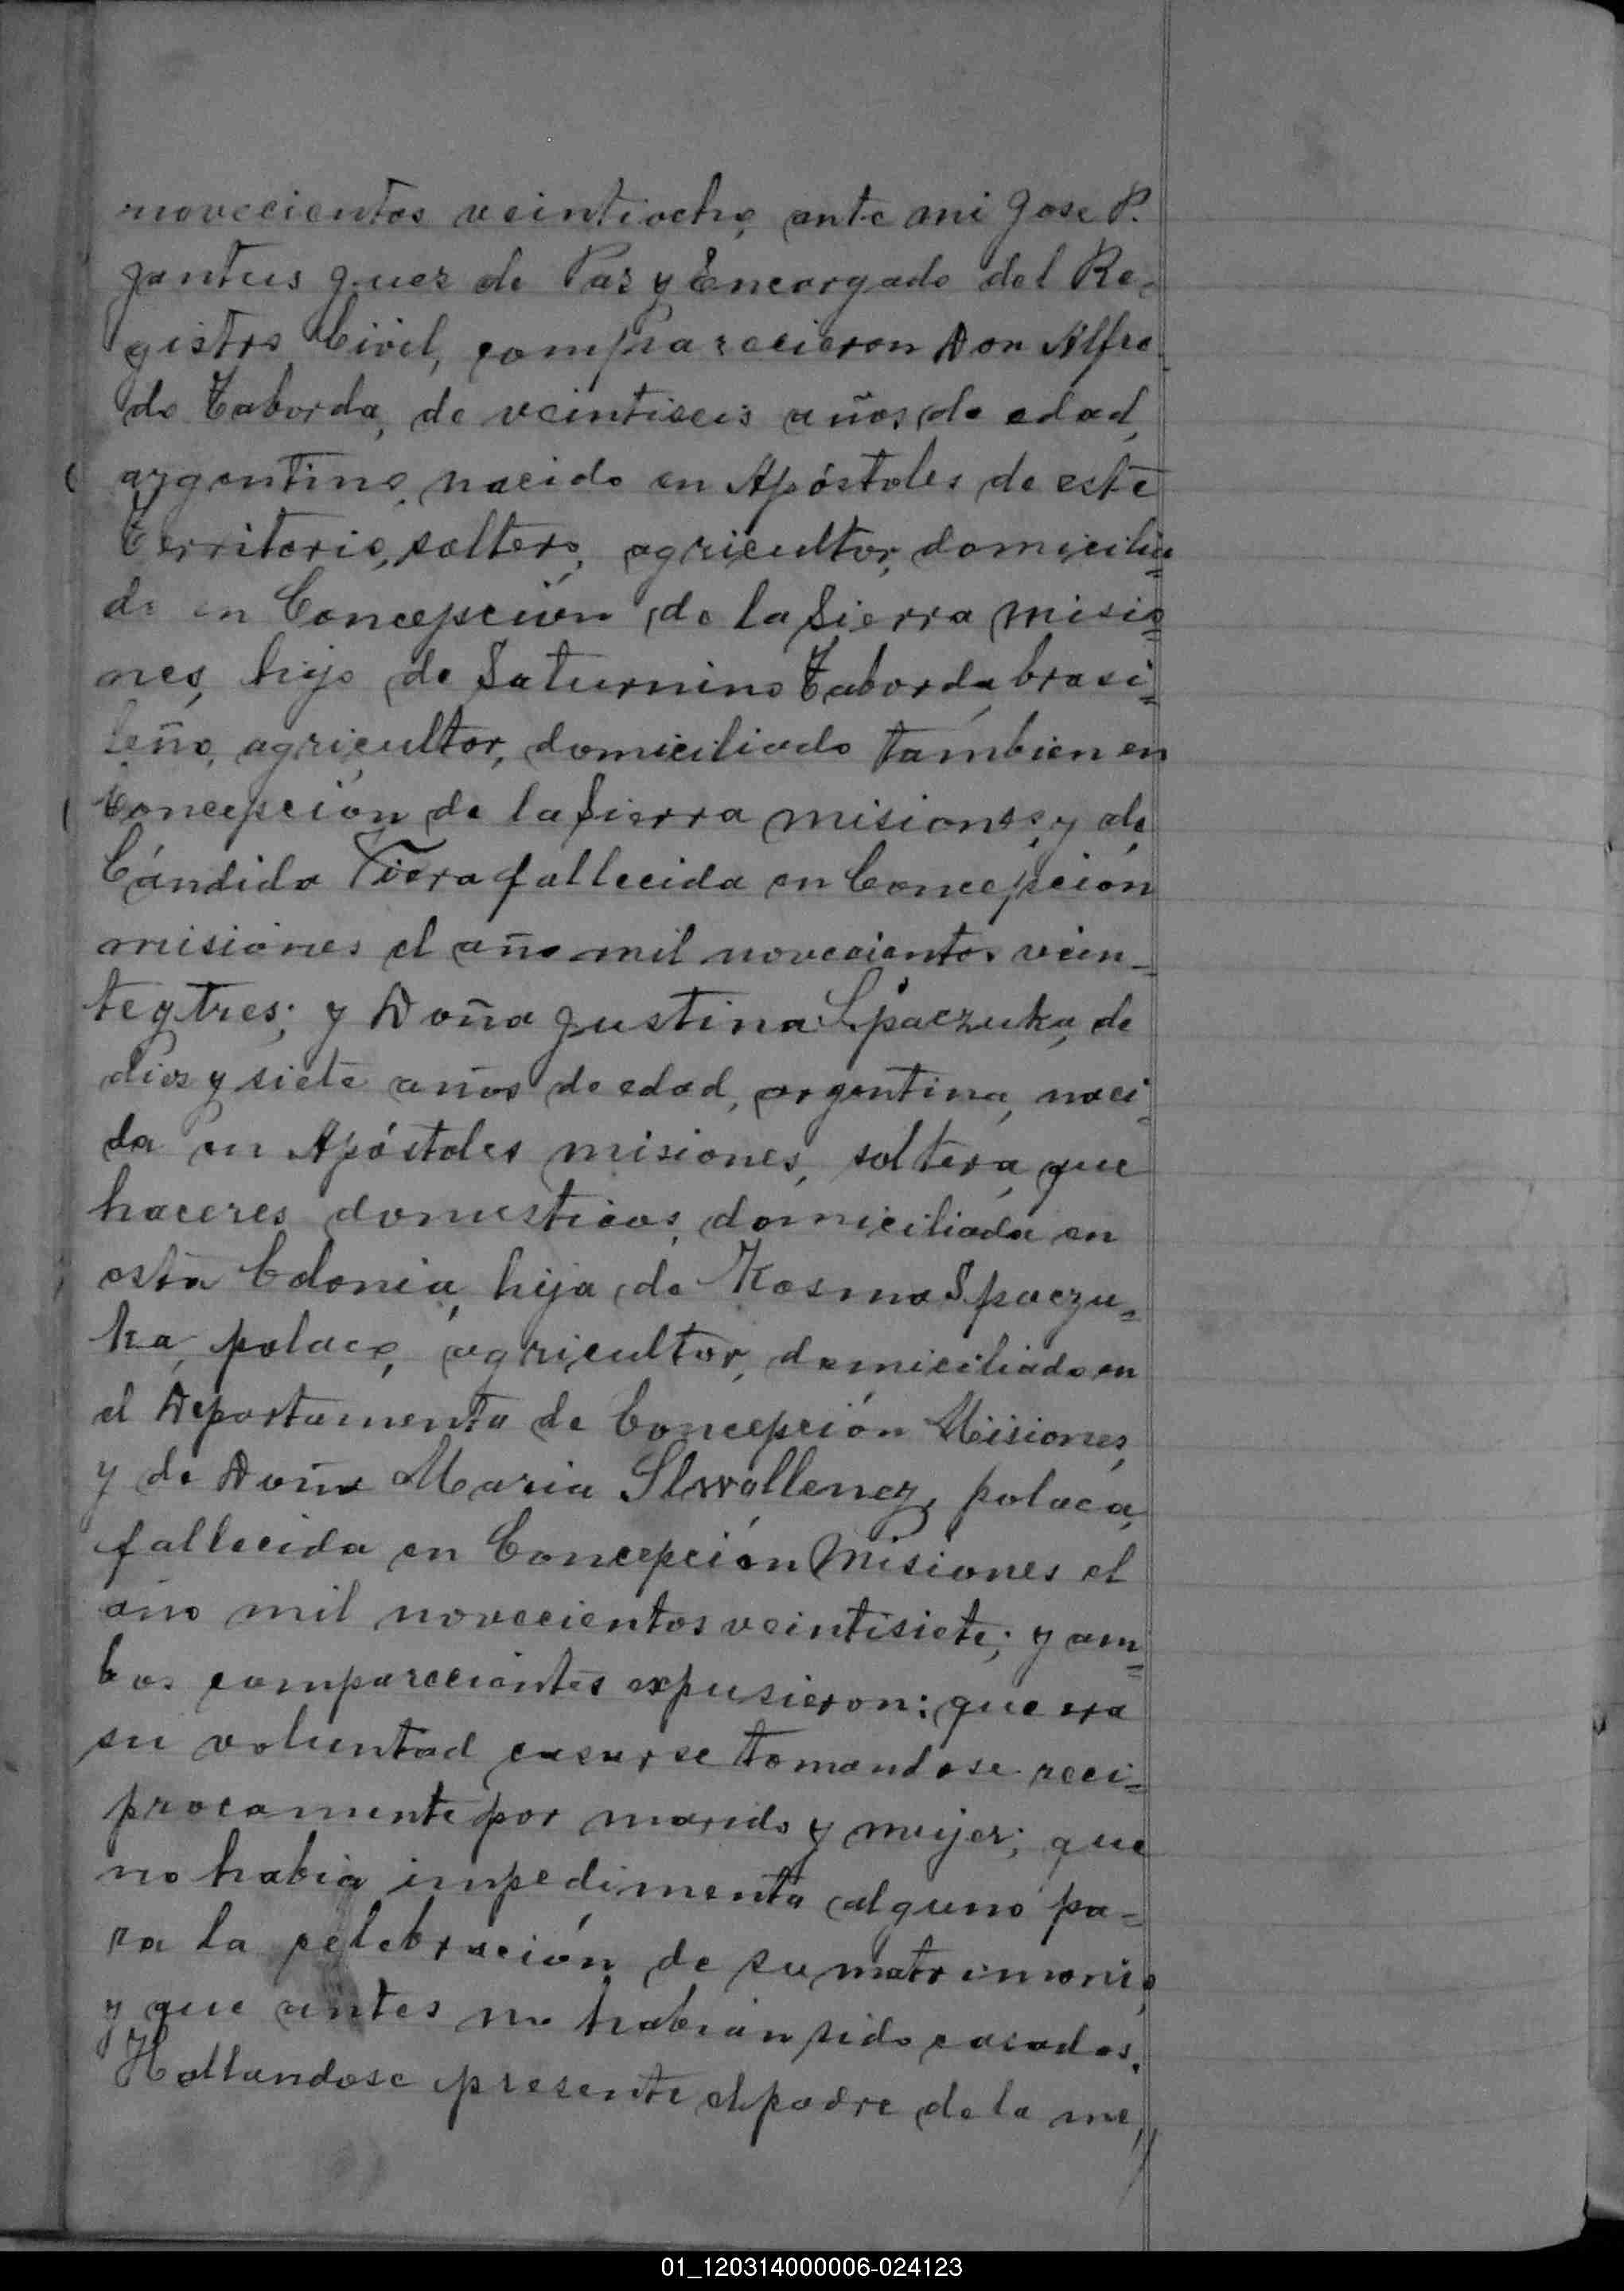 novecientos veintiocho, ante mi Jose P.
Jantus Juez de Paz y Encargado del Re-
gistro Civil, comparecieron Don Alfre-
do Taborda, de veintiseis años de edad,
argentino, nacido en Apóstoles de este
Territorio, soltero, agricultor, domicilia=
do en Concepción de la Sierra Misio=
nes, hijo de Saturnino Taborda, brasi=
leño, agricultor, domiciliado tambien en
Concepción de la Sierra Misiones, y de
Cándida Viera fallecida en Concepción
Misiones el año mil novecientos vein-
te y tres; y Doña Justina Spaczuka, de
diez y siete años de edad, argentina, naci-
da en Apóstoles Misiones, soltera, que
haceres domesticos, domiciliada en
esta Colonia, hija de Kosma Spaczu=
ka, polaco, agricultor, domiciliado en
el Departamento de Concepción Misiones,
y de Doña Maria Slwallenez, polaca,
fallecida en Concepción Misiones el
año mil novecientos veintisiete; y am=
bos comparecientes expusieron: que era
su voluntad casarse tomandose reci=
procamente por marido y mujer; que
no habia impedimento alguno pa=
ra la celebración de su matrimonio,
y que antes no habian sido casados.
Hallandose presente el padre de la me,
01_120314000006-024123